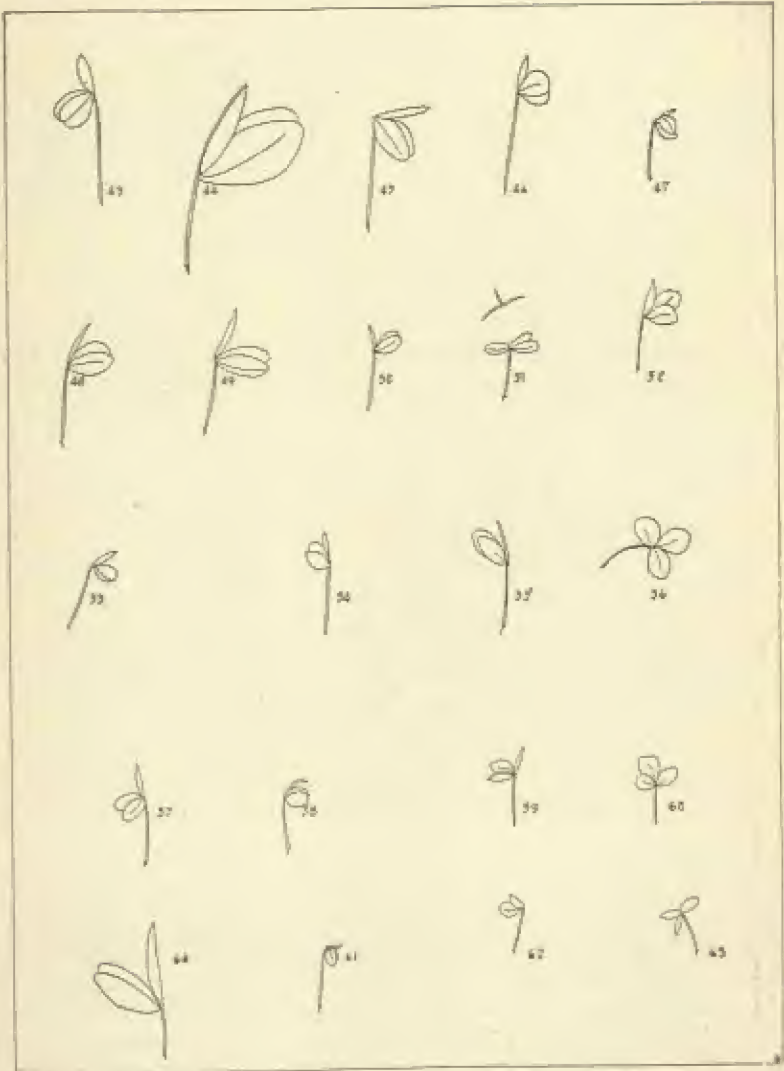 43 44 45 46 47
48 49 50 51 52
53 54 55 56
57 58 59 60
64 61 62 63